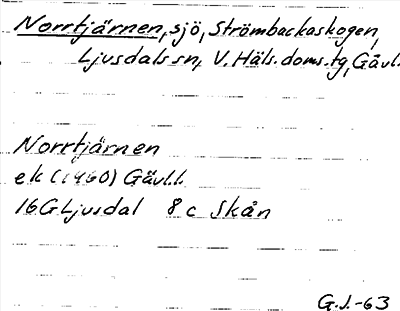 Norrtjärnen, sjö, Strömbackaskogen,
Ljusdals sn, V. Häls. doms. tg, Gävl.
Norrtjärnen
ek (1960) Gävl.l.
16G Ljusdal 8 c Skån
G.J.-63